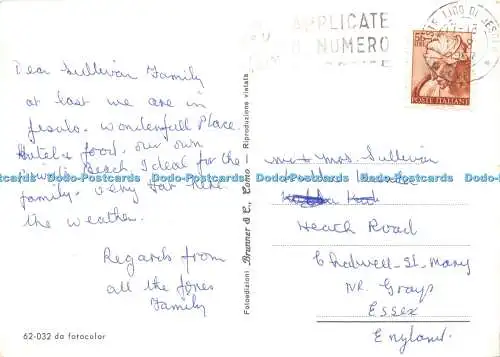 Dear Sullivan Family
at last we are in
Jesolo. Wonderfull Place.
Hotel & food. our own
Private Beach Ideal for the
family. very hot here
the weather.
Regards from
all the Jones
Family
62-032 da fotocolor
Fotoedizioni Brunner & C., Como - Riproduzione vietata
APPLICATE
IL NUMERO
LIDO DI JESOLO
POSTE ITALIANE
Mr & Mrs. Sullivan
Heath Road
Chadwell-St. Mary
NR. Grays
Essex
England.
Dodo-Postcards Dodo-Postcards Dodo-Postcards Dodo-Postcards